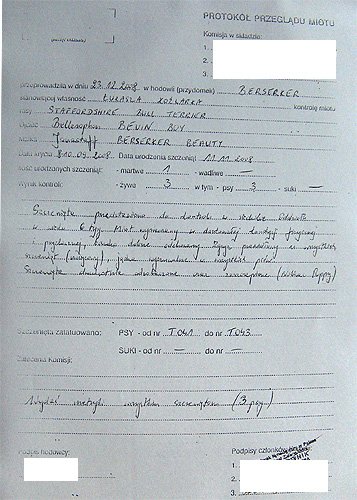 PROTOKÓŁ PRZEGLĄDU MIOTU
Komisja w składzie:
1.
2.
3.
przeprowadziła w dniu 23.12.2008 w hodowli (przydomek) BERSERKER
stanowiącej własność ŁUKASZA KOŹLARKA kontrolę miotu
rasy STAFFORDSHIRE BULL TERRIER
Ojciec Bellerophon BEVIN BOY
BERSERKER BEAUTY
Data krycia 10.09.2008 Data urodzenia szczeniąt 11.11.2008
Ilość urodzonych szczeniąt: - martwe 1 - wadliwe —
- żywe 3 w tym - psy 3 - suki —
Wynik kontroli:
Szczenięta przedstawiono do kontroli w siedzibie Oddziału
w wieku 6 tyg. Miot wyrównany w doskonałej kondycji fizycznej
i psychicznej, bardzo dobrze odchowany. Zgryz prawidłowy u wszystkich
szczeniąt
Szczenięta dwukrotnie odrobaczone oraz zaszczepione
Szczenięta zatatuowano: PSY - od nr T041 do nr T043
SUKI - od nr — do nr —
Zalecenia Komisji:
Wydać metryki wszystkim szczeniętom (3 psy)
Podpis hodowcy:
Podpisy członków
1.
2.
3.